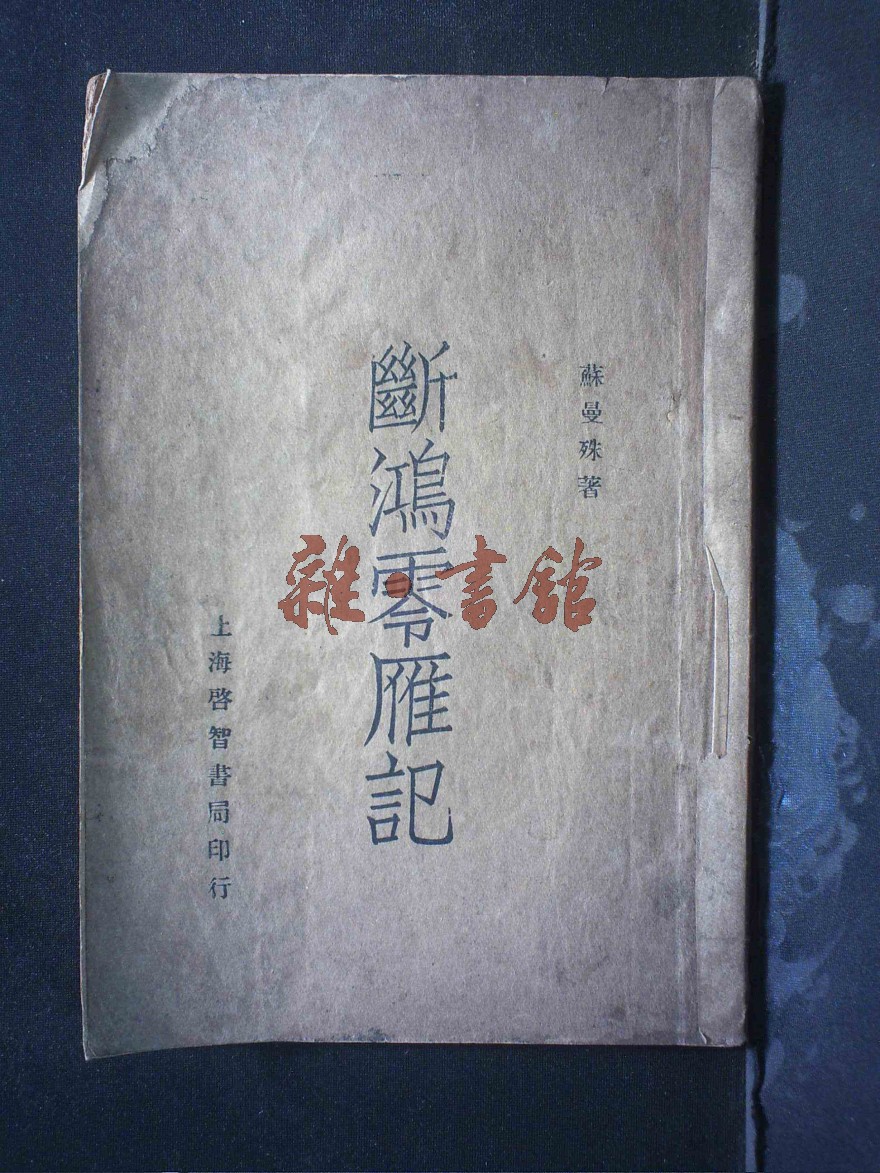 蘇曼殊著
斷鴻零雁記
上海啓智書局印行
雜·書館